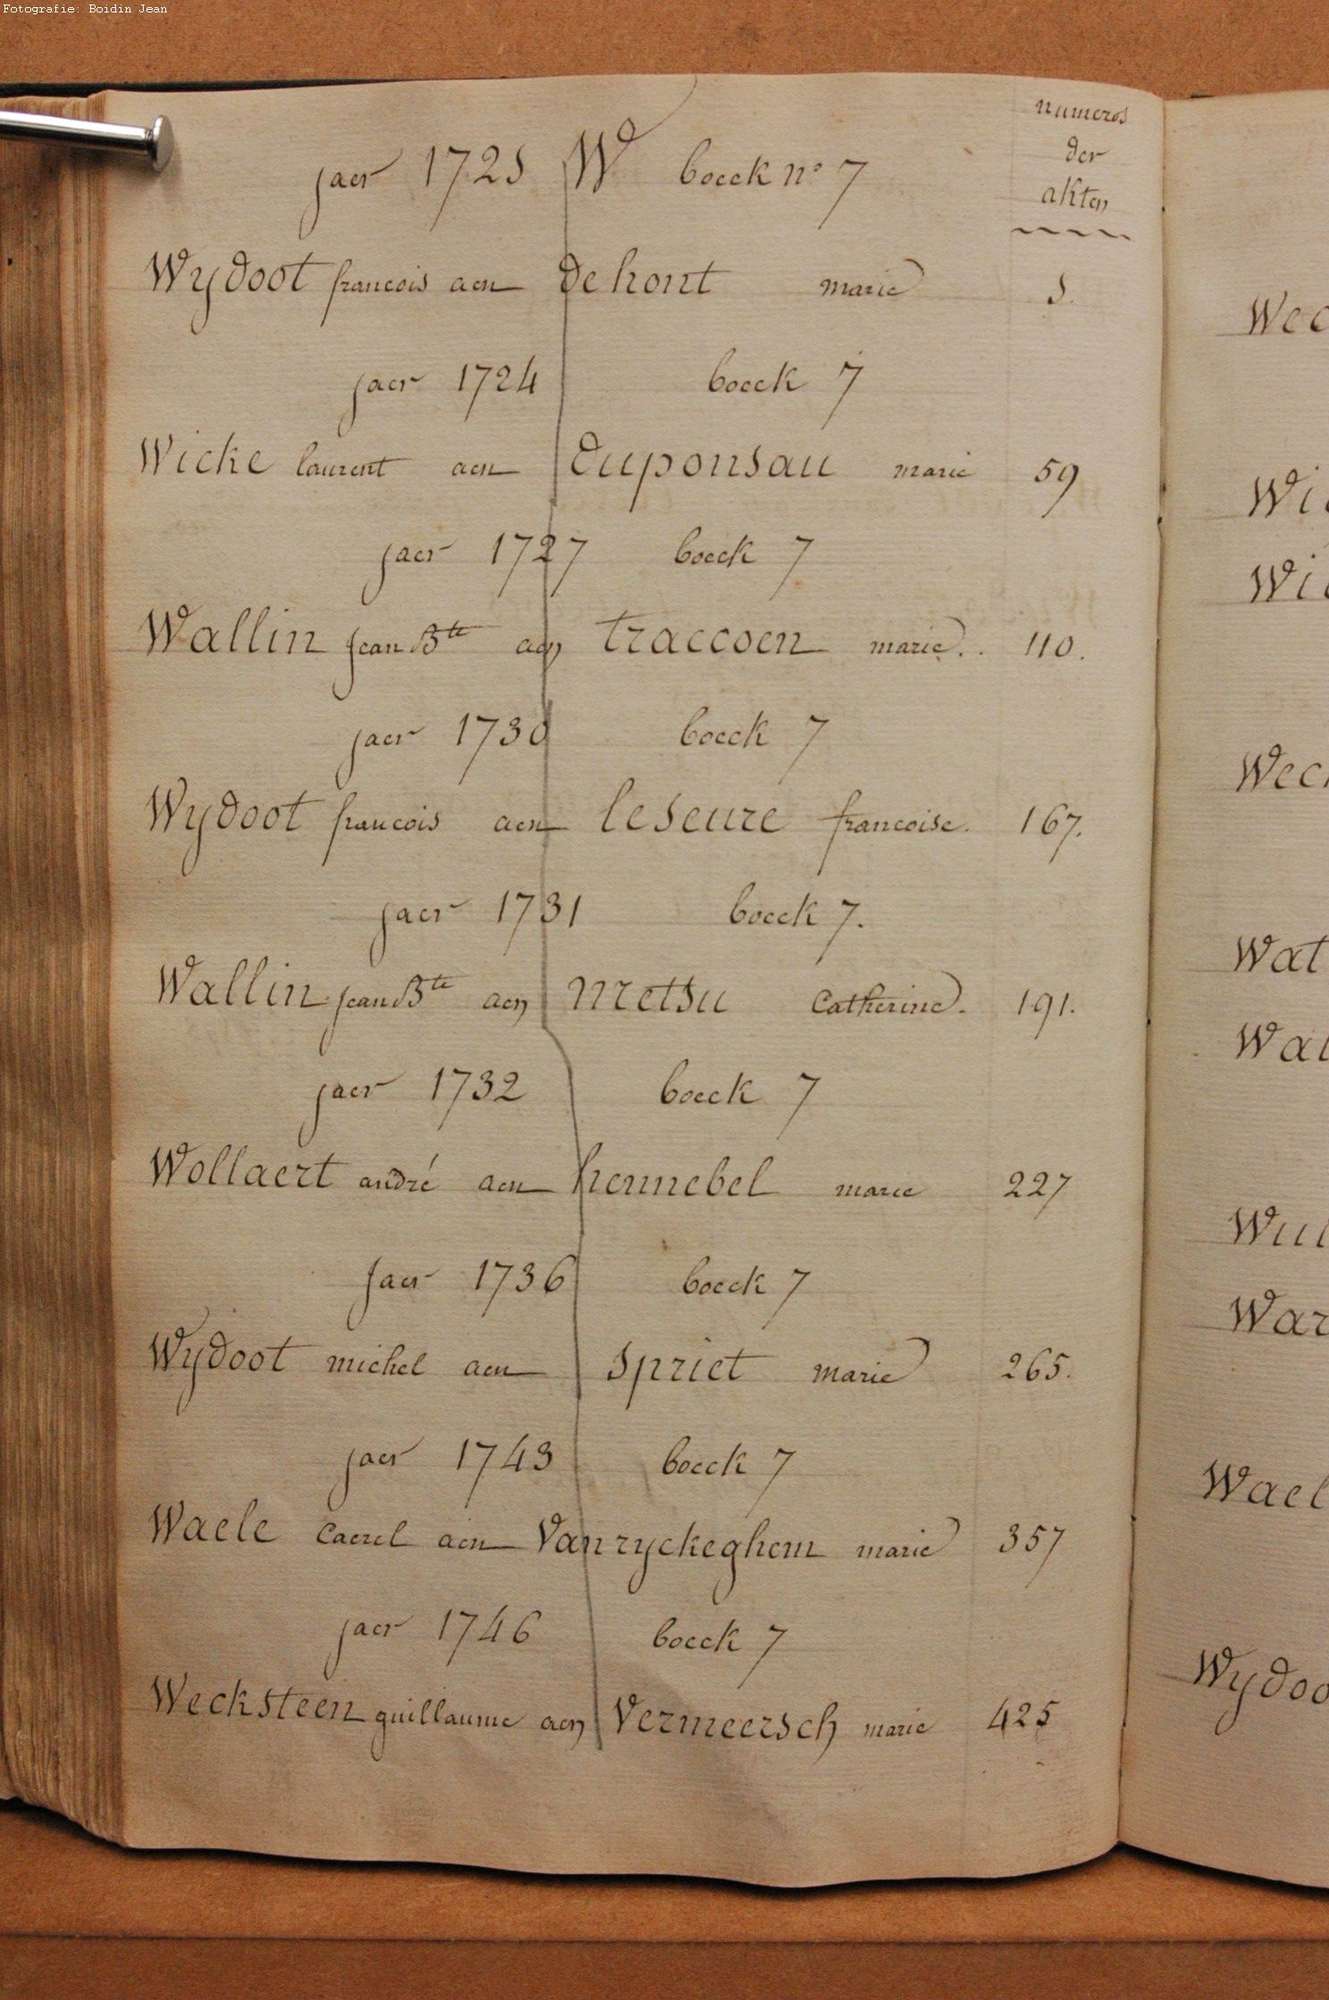 Fotografie: Boidin Jean
numeros
der
akten
jaer 1725 W boeck n° 7
Wydoot francois aen dehont marie 5.
jaer 1724 boeck 7
Wicke laurent aen duponsau marie 59
jaer 1727 boeck 7
Wallin jean Bte aen traccoen marie.. 110.
jaer 1730 boeck 7
Wydoot francois aen leseure francoise. 167.
jaer 1731 boeck 7.
Wallin jean Bte aen metsu Catherine. 191.
jaer 1732 boeck 7
Wollaert andré aen hennebel marie 227
jaer 1736 boeck 7
Wydoot michel aen spriet marie 265.
jaer 1743 boeck 7
Waele Caerel aen Vanryckeghem marie 357
jaer 1746 boeck 7
Wecksteen guillaume aen Vermeersch marie 425
Wec
Wi
Wi
Wec
Wat
Wal
Wul
War
Wael
Wydoo